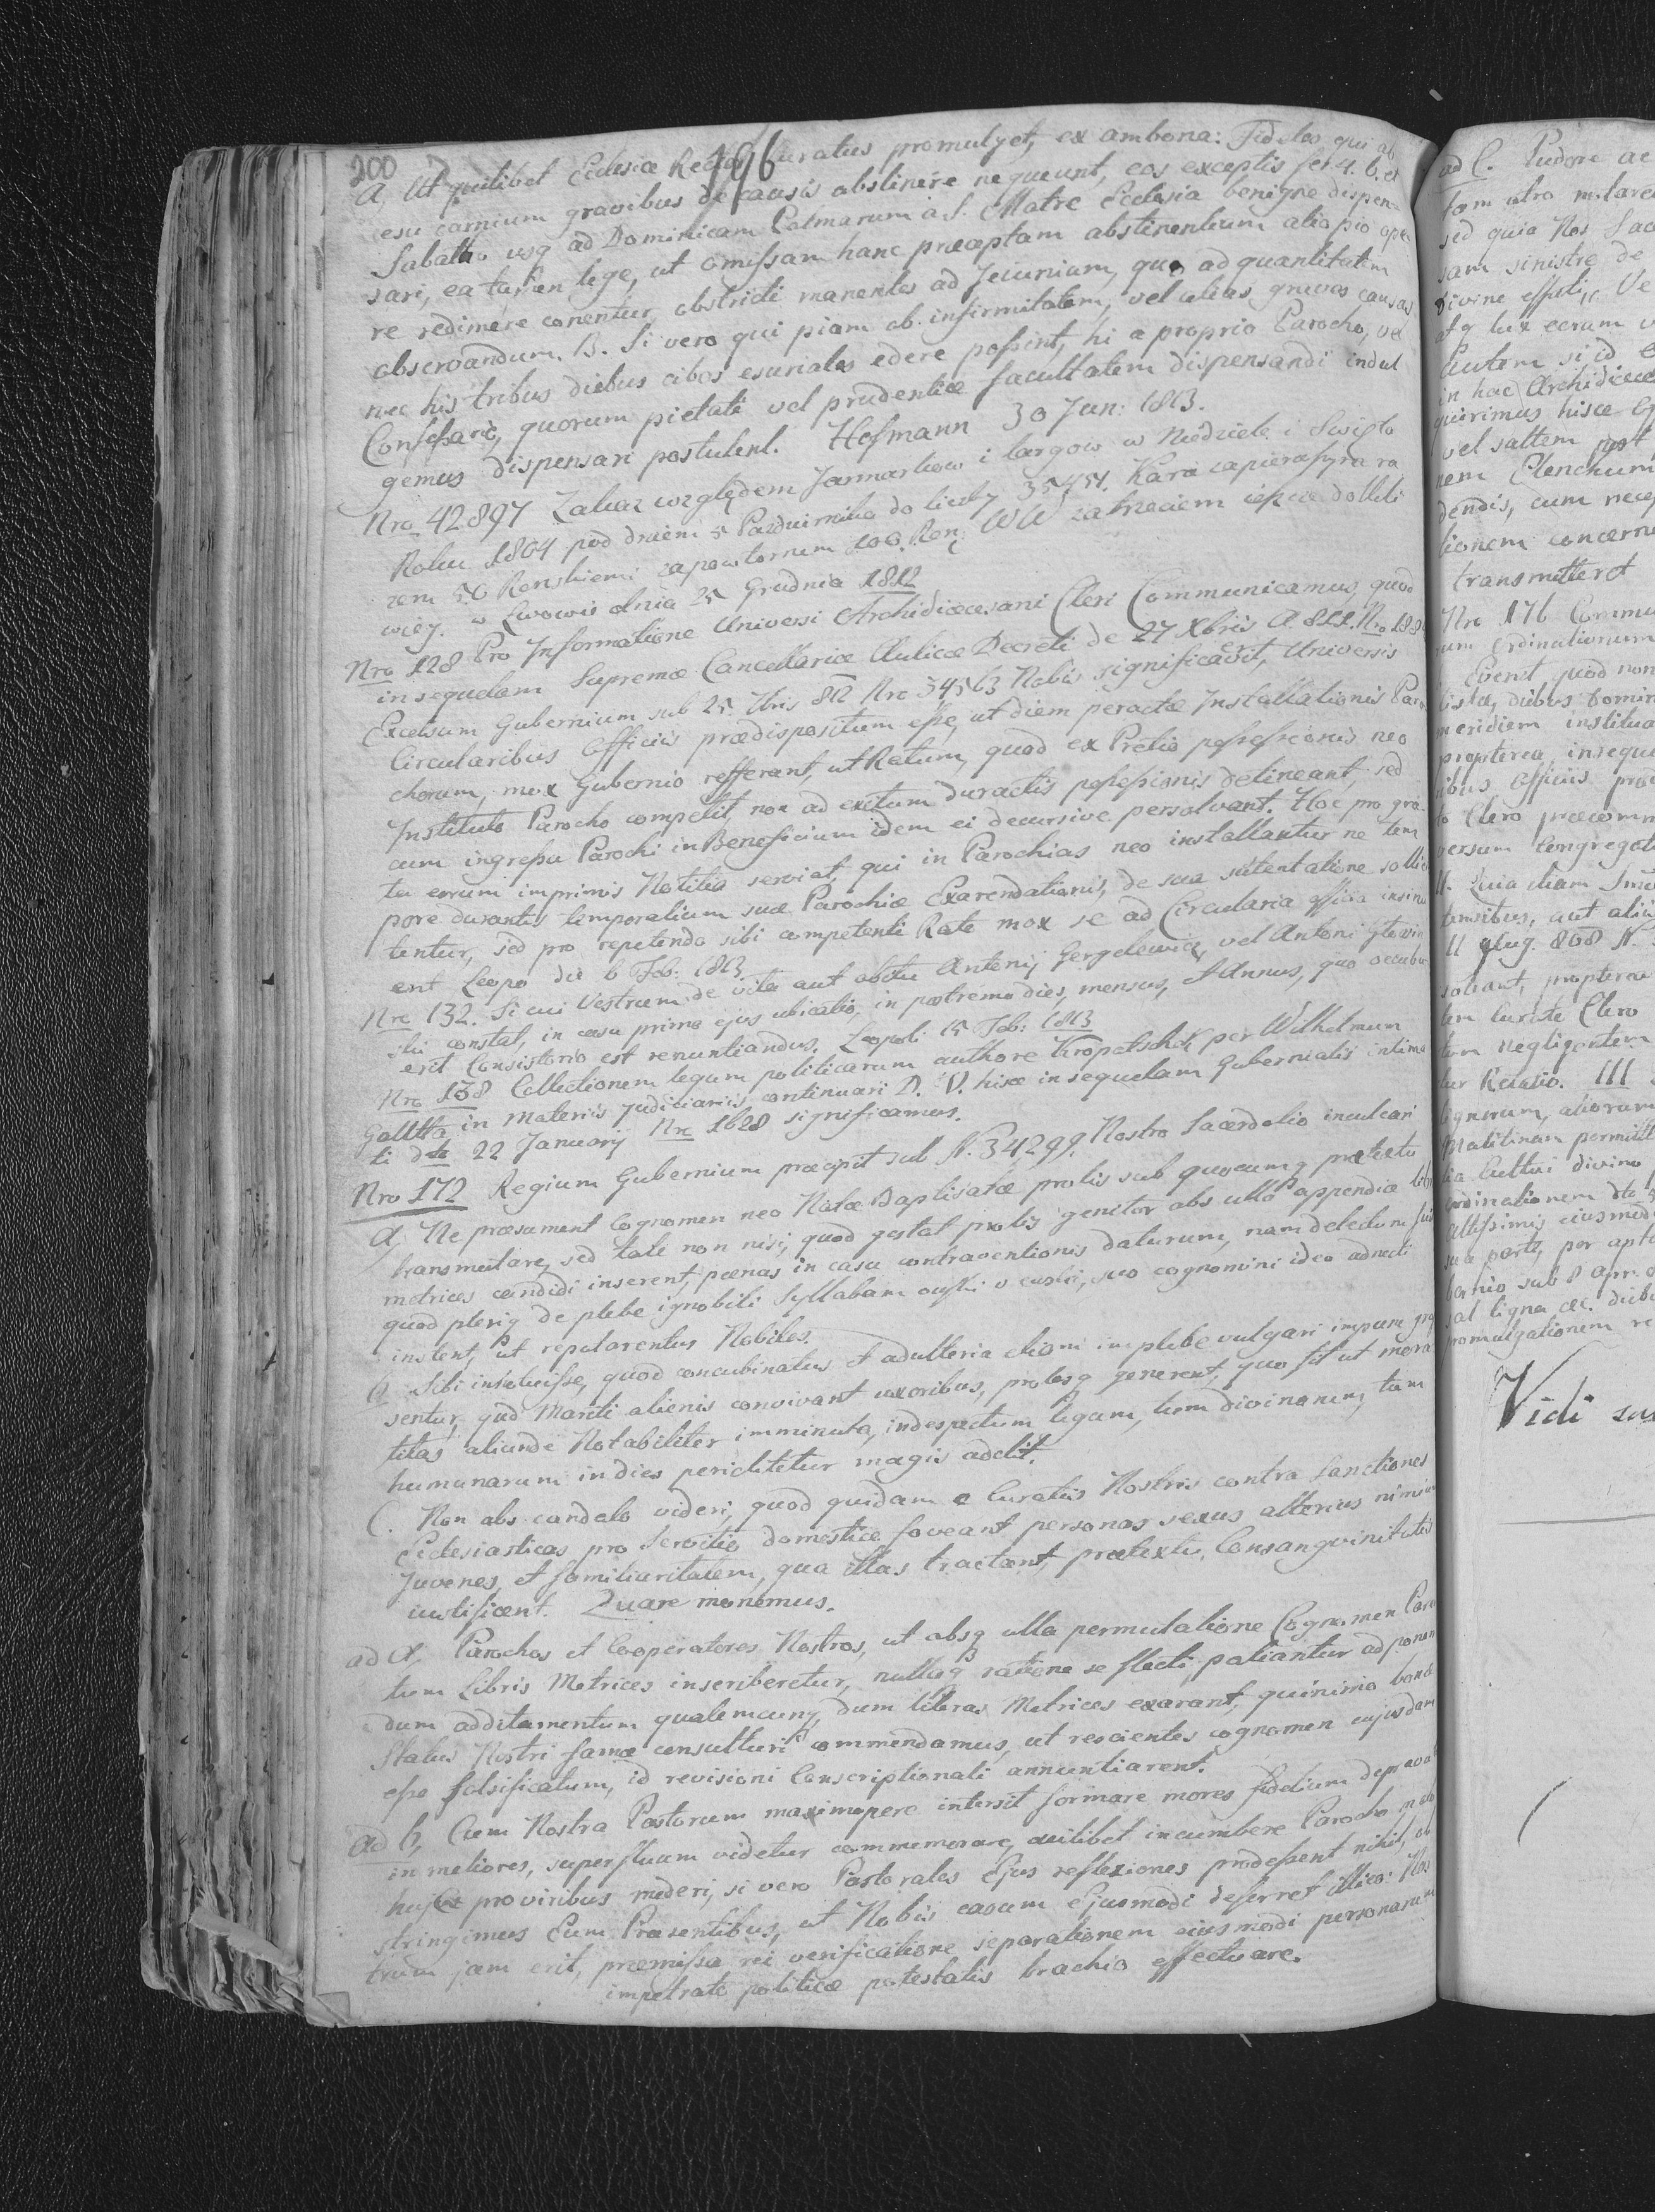 200
196
A, Ut quilibet Ecclesiæ Rector Curatus promulget, ex ambona: Fideles qui ab
esu carnium gravibus de causis abstinere nequeunt, eos exceptis fer 4. 6. et
Sabatho usq ad Dominicam Palmarum a S. Matre Ecclesia benigne dispen
sari, ea tamen lege, ut omissam hanc præceptam abstinentium alio pio ope
re redimere conentur, obstricti manentes ad Jeiunium, quo ad quantitatem
observandum. B. Si vero qui piam ob infirmitatem, vel alias graves causas
nec his tribus diebus cibos esuriales edere possint, hi a proprio Parocho, vel
Confessario, quorum pietati vel prudentiæ facultatem dispensandi indul
gemus dispensari postulent. Hofmann 30 Jan: 1813.
Nro 42897 Zakaz względem Jarmarkow i targow w Niedziele i Swięto
Roku 1804 pod dniem 5 Pazdziernika do liczby 35454. Kara za pierwszym ra
zem 50 Renskiemi za powtornem 100. Ren: WW za trzeciem
więy. w Lwowie dnia 25 Grudnia 1812
Nro 128 Pro Informatione Universi Archidiœcesani Cleri Communicamus, quod
in sequelam Supremæ Cancellariæ Aulicæ Decreti de 27 Xbris A 812. Nro
Excelsum Gubernium sub 25. Xbris 812 Nro 34563 Nobis significaverit, Universis
Circularibus Officiis prædispositum esse, ut diem peractæ Installationis Paro
chorum, mox Gubernio refferant, ut Ratum, quod ex Pretio possessionis neo
Instituto Parocho competit, non ad exitum durantis possessionis detineant, sed
cum ingressu Parochi in Beneficium idem ei decursive persolvant. Hoc pro gra
tu eorum imprimis Notitia serviat, qui in Parochias neo installantur ne tem
pore durantis temporalium suæ Parochiæ Exarendationis, de sua sustentatione sollici
tentur, sed pro repetenda sibi competenti Rata mox se ad Circularia officia insinu
ent Leopo die 6 Feb: 1813.
Nro 132. Si cui Vestrum de vita aut obitu Antonij Gergelewicz, vel Antoni
ski constat, in casu primo ejus ubicatio, in postremo dies, mensus, et Annus, quo occubu
erit Consistorio est renuntiandus. Leopoli 15 Feb: 1813
Nro 138 Collectionem legum politicarum authore Kropatschek per Wilhelmum
Goutta in Materiis Judiciariis continuari D. V. hisce in sequelam Gubernialis intima
ti dto 22 Januarij Nro 1628 significamus.
Nro 172 Regium Gubernium præcipit sub N. 34299. Nostro Sacerdotio inculcari
A, Ne præsumant Cognomen neo Natæ Baptisatæ prolis sub quocumq prætextu
transmutare, sed tale non nisi, quod gestat prolis genitor abs ulla appendice libri
metrices candidi inserent, pœnas in casu contraventionis daturum, nam delectum
quod pleriq de plebe ignobili Syllabam owski v ewski, suo cognomini ideo adnecti
instent, ut reputarentur Nobiles.
b Sibi instituisse, quod concubinatus et adulteria etiam in plebe vulgari impune prq
sentur, qud Mariti alienis convivant uxoribus, prolesq generent, quo fit ut mora
litas aliunde Notabiliter imminuta, indespectum legum, tum divinarum, tum
humanarum in dies periclitetur magis adelit.
C. Non abs candalo videri, quod quidam e Curatis Nostris contra Sanctiones
Ecclesiasticas pro Servitio domestico foveant personas sexus alterius nimium
Juvenes, et familiaritatem, qua illas tractant, prætextu, Consangvinitatis
justificent. Quare monemus.
ad A, Parochos et Cooperatores Nostros, ut absq ulla permutatione Cognomen Paren
tum Libris Metrices inscriberetur, nullaq ratione se flecti patiantur ad ponen
dum additamentum qualemcunq, dum literas Metrices exarant, quinimo bonæ
Status Nostri famæ consulturi commendamus, ut rescientes cognomen cujusdam
esse falsificatum, id revisioni Conscriptionali annuntiarent.
ad b, Cum Nostra Pastorum maximopere intersit formare mores fidelium depravat
in meliores, superfluum videtur commemorare, cuilibet incumbere Parocho malo
huic pro viribus mederi, si vero Pastorales Ejus reflexiones prodessent nihil, ob
stringimus Eum Præsentibus, ut Nobis casum Ejusmodi deferret illico: Nos
trum jam erit, præmissa rei verificatione separationem ejusmodi personarum
impetrate politicæ potestatis brachio effectuare.
ad C. Pudore
tam atro
sed quia Nos
sam sinistre de
divine
atq lux earum
Autem si id
in hac Archidiœce
quirimus hisce
vel saltem post
nem Elenchum
dendis, cum
tionem concerne
transmitteret
Nro 176 Commu
num Ordinationum
Evenit, quod non
diebus Domin
meridiem
propterea in seque
ribus Officiis præ
to Clero præcomm
versum Congregat
II. Quia etiam
tensibus, aut alii
11 Aug. 808 N.
solvant, propterea
tem Curato Clero
tum negligentem
tur Relatio. III
lignorum, aliorum
Matutinam permitt
tia Cultui divino
ordinationem dto
altissimis ejusmodi
sua parte, per
bernio sub 8 Apr.
sal ligna etc. diebu
promulgationem re
Vidi